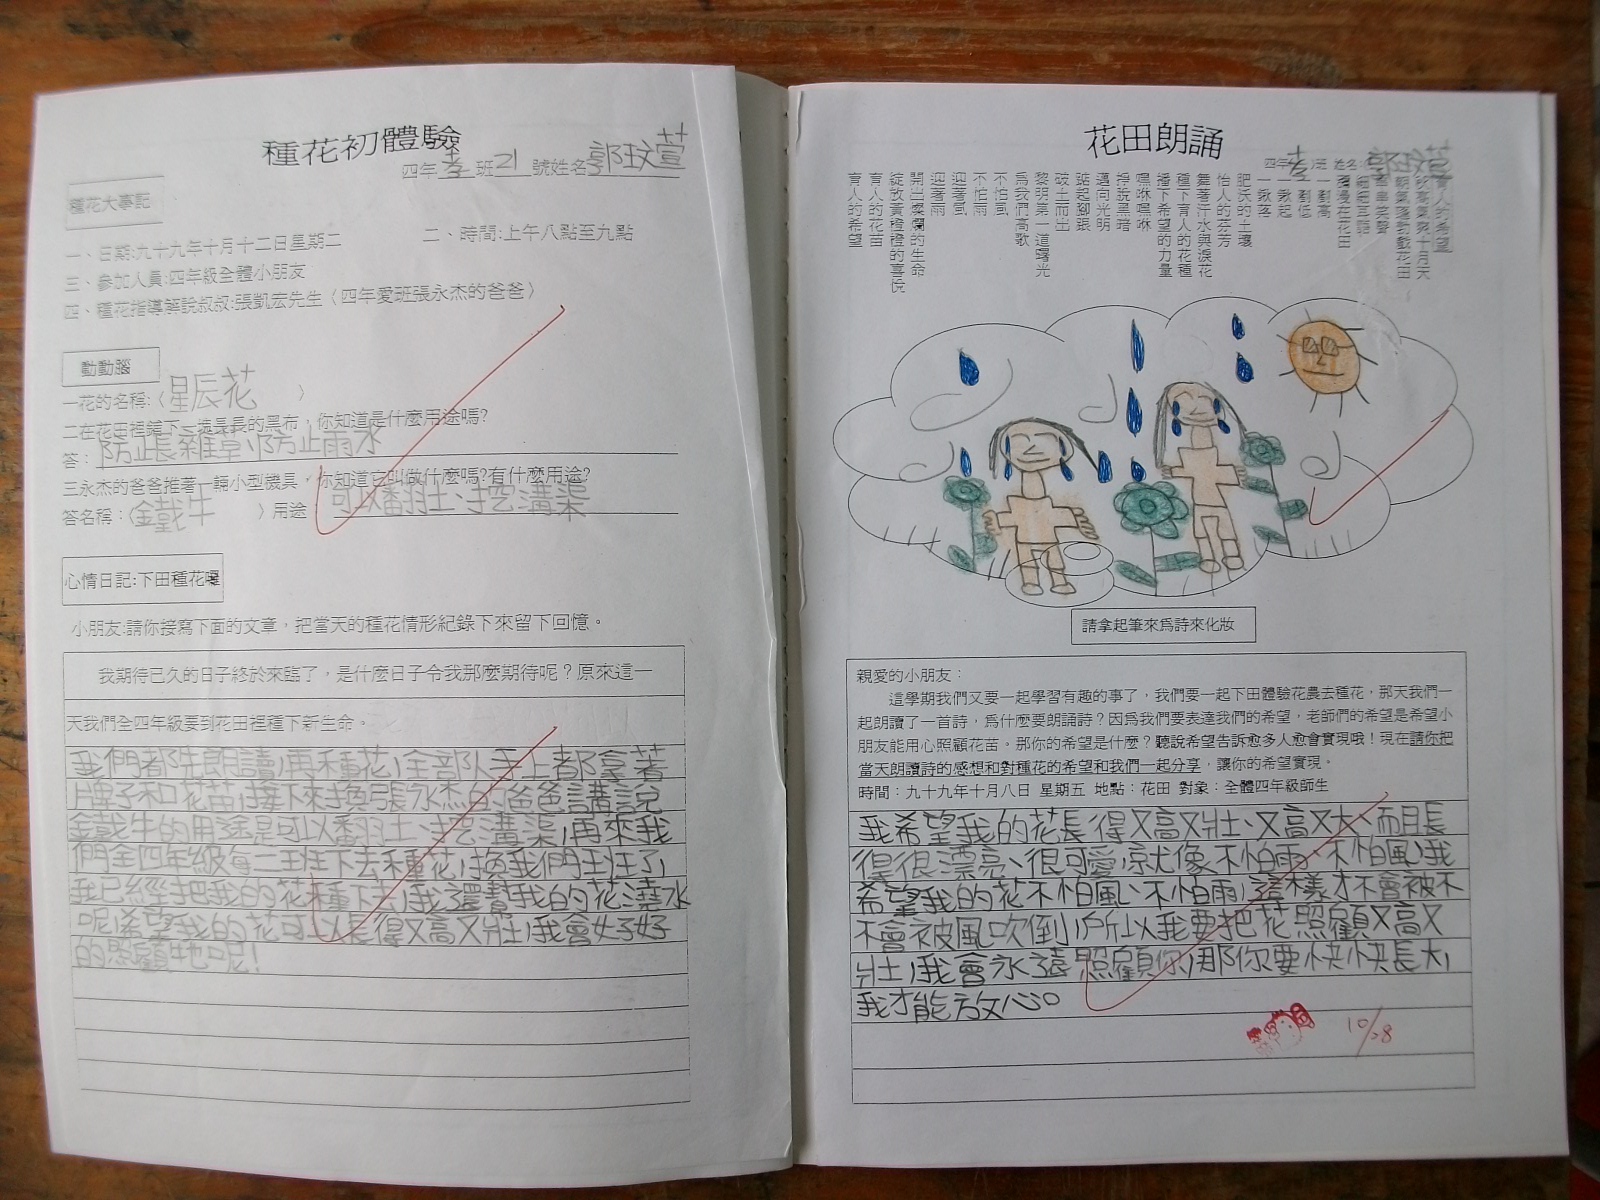 種花初體驗
四年孝班21號姓名郭玟萱
種花大事記
一、日期:九十九年十月十二日星期二 二、時間:上午八點至九點
三、參加人員:四年級全體小朋友
四、種花指導解說叔叔:張凱宏先生〈四年愛班張永杰的爸爸〉
動動腦
一花的名稱:〈星辰花〉
二在花田裡鋪下一塊長長的黑布，你知道是什麼用途嗎?
答：防止長雜草,防止雨水
三永杰的爸爸推著一輛小型機具，你知道它叫做什麼嗎?有什麼用途?
答名稱：〈鐵牛〉用途 可以翻土、挖溝渠
心情日記:下田種花囉
小朋友:請你接寫下面的文章，把當天的種花情形紀錄下來留下回憶。
我期待已久的日子終於來臨了，是什麼日子令我那麼期待呢？原來這一
天我們全四年級要到花田裡種下新生命。
我們都先朗讀,再種花,全部队手上都拿著
牌子和花苗,接下來換張永杰的爸爸講說
鐵牛的用途是可以翻土、挖溝渠,再來我
們全四年級每二班下去種花,換我們班了,
我已經把我的花種下去,我還幫我的花澆水
呢,希望我的花可以長得又高又壯,我會好好
的照顧牠呢!
花田朗誦
四年孝班 姓名:郭玟萱
育人的希望
秋高氣爽十月天
朝氣蓬勃戲花田
年年笑聲
細細耳語
瀰漫在花田
一劃高
一劃低
一鍬起
一鍬落
肥沃的土壤
怡人的芬芳
舞著汗水與淚花
種下育人的花種
播下希望的力量
嘿咻嘿咻
掙脫黑暗
邁向光明
踮起腳跟
破土而出
黎明第一道曙光
為我們高歌
不怕風
不怕雨
迎著風
迎著雨
開出燦爛的生命
綻放黃橙橙的喜悅
育人的花苗
育人的希望
請拿起筆來為詩來化妝
親愛的小朋友：
這學期我們又要一起學習有趣的事了，我們要一起下田體驗花農去種花，那天我們一
起朗讀了一首詩，為什麼要朗誦詩？因為我們要表達我們的希望，老師們的希望是希望小
朋友能用心照顧花苗。那你的希望是什麼？聽說希望告訴愈多人愈會實現哦！現在請你把
當天朗讀詩的感想和對種花的希望和我們一起分享，讓你的希望實現。
時間：九十九年十月八日 星期五 地點：花田 對象：全體四年級師生
我希望我的花長得又高又壯、又高又大、而且長
得很漂亮、很可愛,就像不怕雨、不怕風,我
希望我的花不怕風、不怕雨,這樣才不會被不
不會被風吹倒,所以我要把花照顧又高又
壯,我會永遠照顧你,那你要快快長大,
我才能放心。
10/28